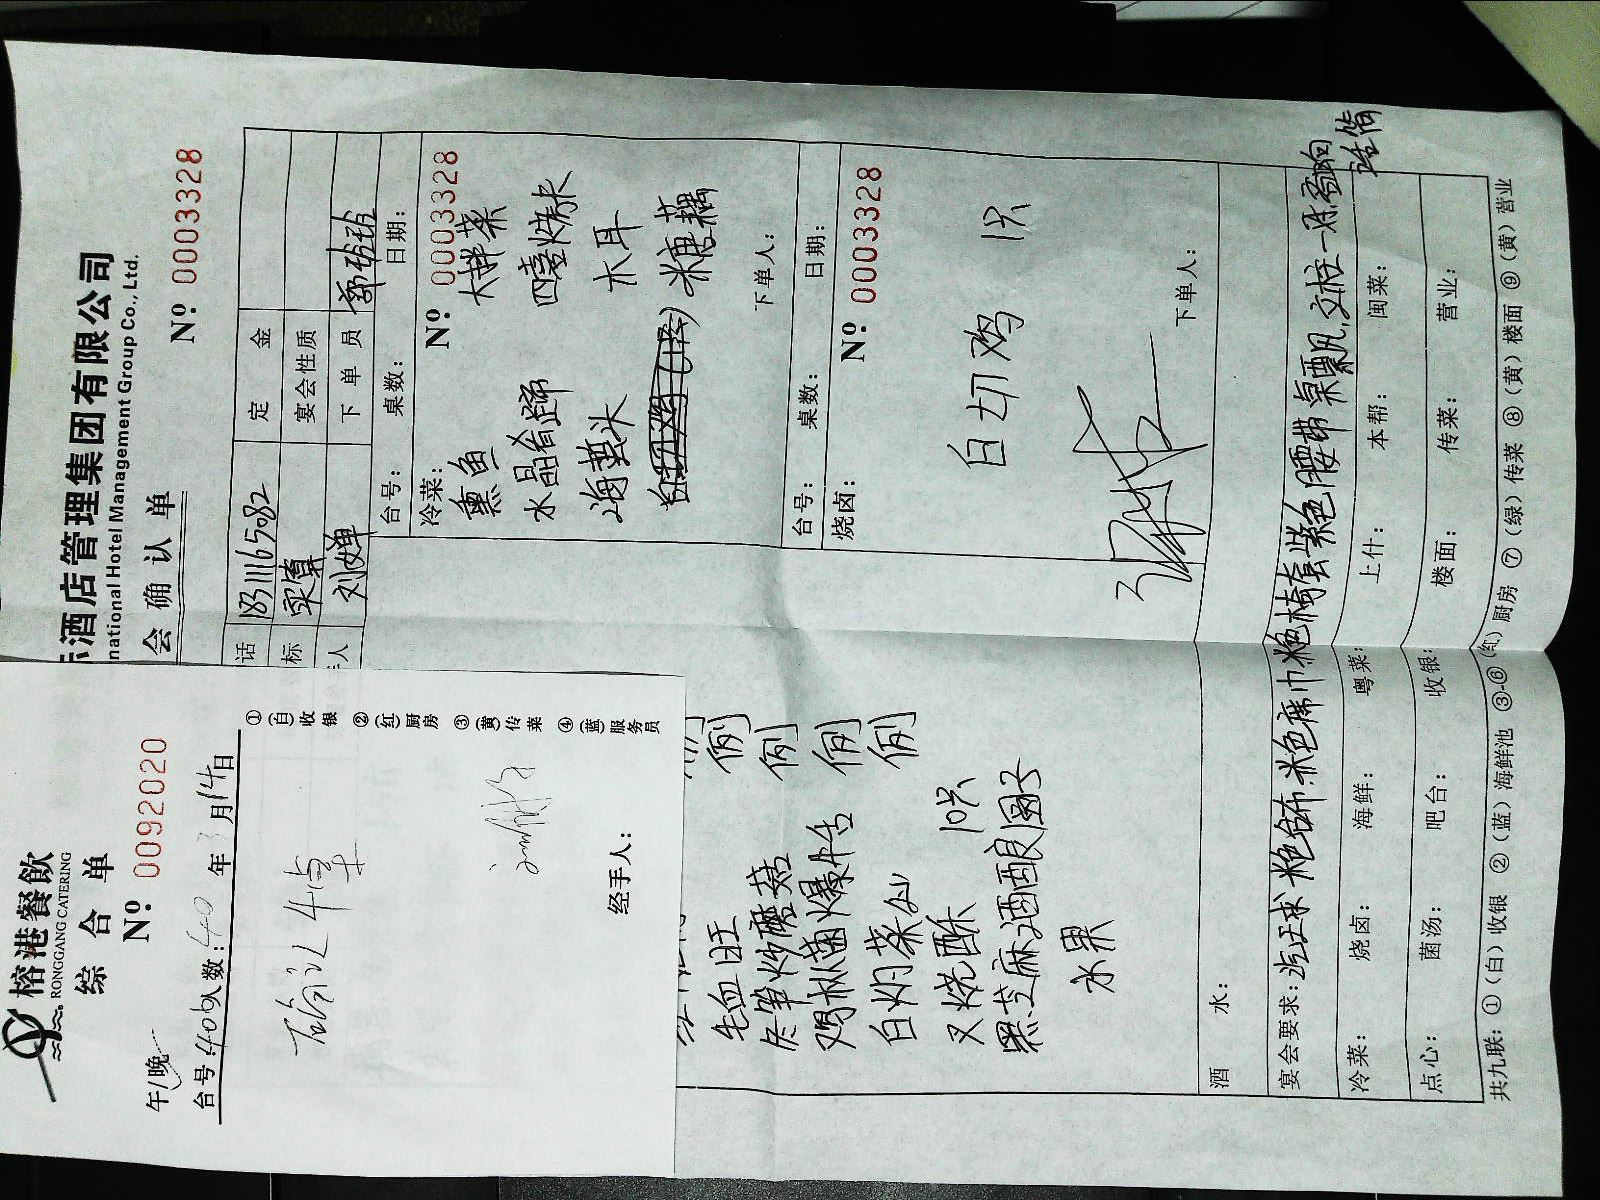 榕港餐飲
RONGGANG CATERING
综合单
午/晚
Nº 0092020
台号:406 人数:40 年3月14日
经手人:
①(白)收银
②(红)厨房
③(黄)传菜
④(蓝)服务员
酒店管理集团有限公司
national Hotel Management Group Co., Ltd.
会确认单
Nº 0003328
话 18311165082 定金
标 实算 宴会性质
人 刘婵 下单员
台号: 桌数: 日期:
冷菜: Nº 0003328
熏鱼 大拌菜
水晶肴蹄 四喜烤夫
海蜇头 木耳
糖藕
下单人:
台号: 桌数: 日期:
烧卤: Nº 0003328
白切鸡 1只
下单人:
毛血旺 例
冬笋炒蘑菇 例
鸡枞菌爆牛舌 例
白灼菜心 例
叉烧酥 10只
黑芝麻酒酿圆子
水果
酒水:
宴会要求:汽球 米色台布.米色席巾 米色椅套 紫色腰带 桌飘.立柱一对 音响 话筒
冷菜: 烧卤: 海鲜: 粤菜: 上什: 本帮: 闽菜:
点心: 菌汤: 吧台: 收银: 楼面: 传菜: 营业:
共九联: ①(白)收银 ②(蓝)海鲜池 ③-⑥(红)厨房 ⑦(绿)传菜 ⑧(黄)楼面 ⑨(黄)营业